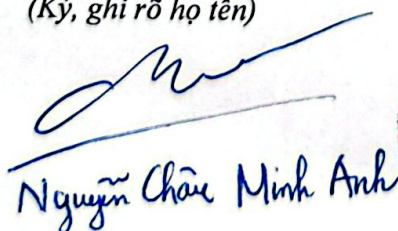 (Ký, ghi rõ họ tên)
Nguyễn Châu Minh Anh